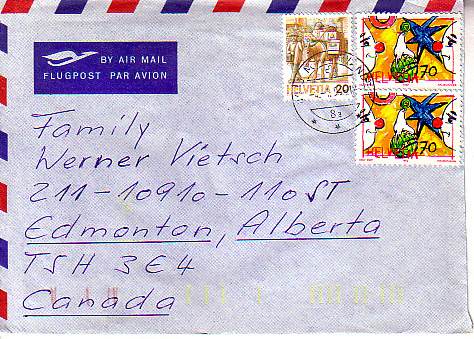 BY AIR MAIL
FLUGPOST PAR AVION
HELVETIA 20
HELVETIA 70
HELVETIA 70
8a
Family
Werner Vietsch
211-10910-110 ST
Edmonton, Alberta
T5H 3E4
Canada